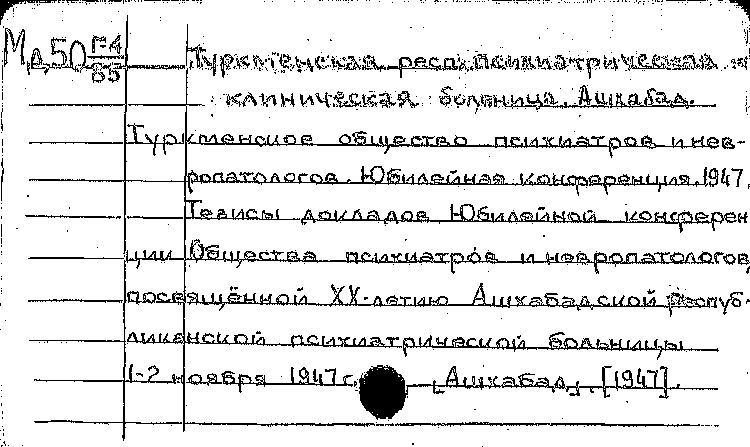 Мд50 Г-4/85 Туркменская респ. психиатрическая
клиническая больница. Ашхабад.
Туркменское общество психиатров и нев-
ропатологов. Юбилейная конференция. 1947.
Тезисы докладов Юбилейной конферен
ции Общества психиатров и невропатологов,
посвящённой XX-летию Ашхабадской Респуб-
ликанской психиатрической больницы
1-2 ноября 1947 г. [Ашхабад]. [1947].